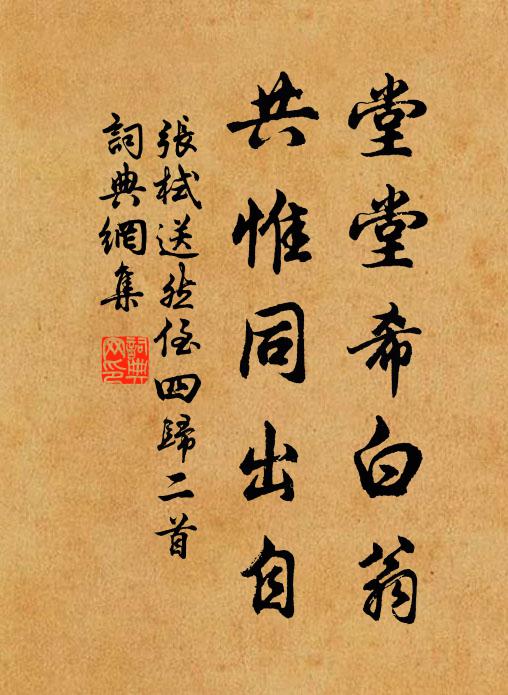 堂堂希白翁
共惟同出自
張栻送然侄四歸二首
詞典網集
詞典網印